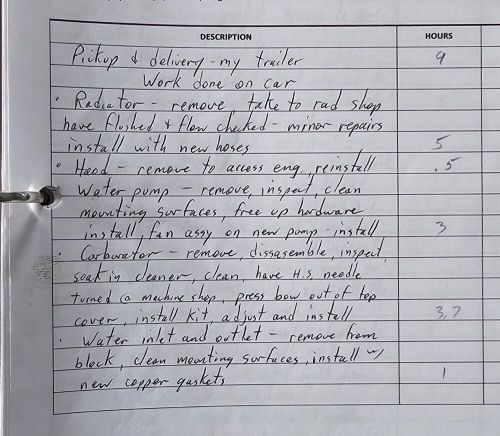 DESCRIPTION HOURS
Pickup & delivery - my trailer 9
Work done on car
· Radiator - remove, take to rad shop
have flushed & flow checked - minor repairs
install with new hoses 5
· Hood - remove to access eng, reinstall .5
· Water pump - remove, inspect, clean
mounting surfaces, free up hardware
install, fan assy on new pump - install 3
· Carburator - remove, dissasemble, inspect,
soak in cleaner, clean, have H.S. needle
turned @ machine shop, press bow out of top
cover, install kit, adjust and install 3.7
· Water inlet and outlet - remove from
block, clean mounting surfaces, install w/
new copper gaskets 1